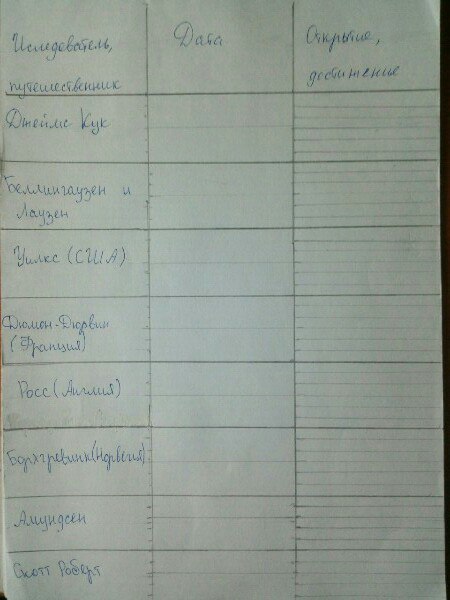 Иследователь,
путешественник
Дата
Открытие,
достижение
Джеймс Кук
Беллингаузен и
Лаузен
Уилкс (США)
Дюмон-Дюрвин
(Франция)
Росс (Англия)
Борхгревинк (Норвегия)
Амундсен
Скотт Роберт